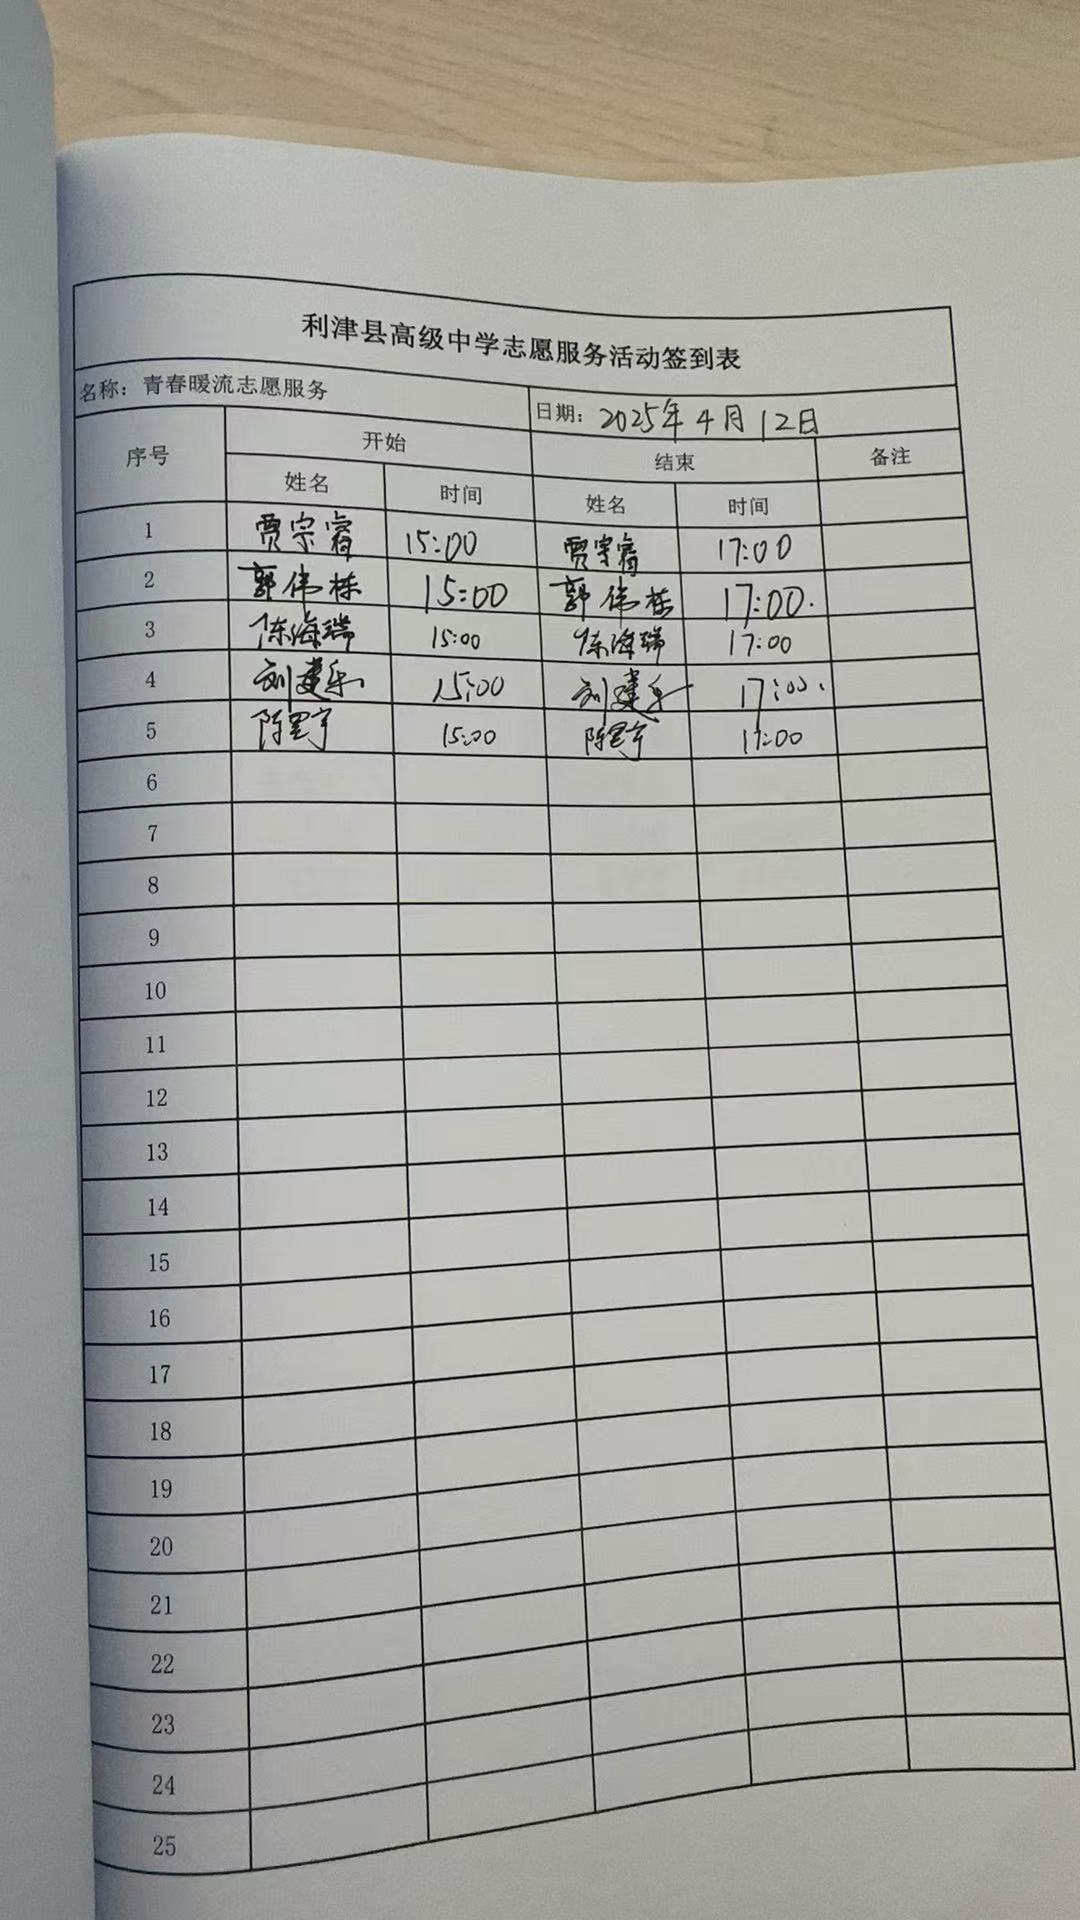 利津县高级中学志愿服务活动签到表
名称：青春暖流志愿服务 日期：2025年4月12日
序号 开始 结束 备注
姓名 时间 姓名 时间
1 贾宗睿 15:00 贾宗睿 17:00
2 郭伟栋 15:00 郭伟栋 17:00.
3 陈海瑞 15:00 陈海瑞 17:00
4 刘建乐 15:00 刘建乐 17:00.
5 15:00 17:00
6
7
8
9
10
11
12
13
14
15
16
17
18
19
20
21
22
23
24
25